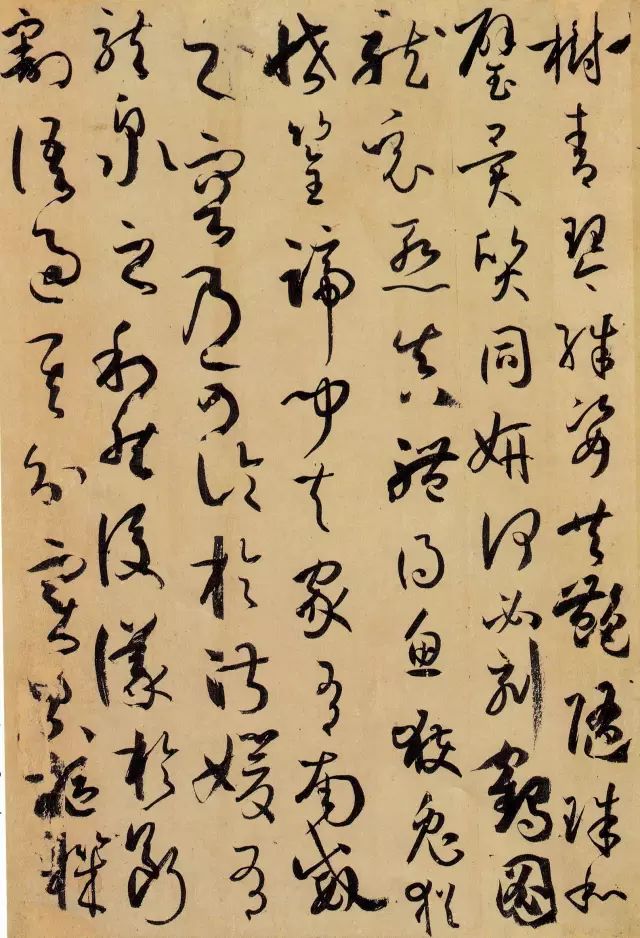 樹青琴殊姿共艷隨珠和
璧異質同妍何必刻鶴圖
龍竟慚真體得魚獲兔猶
恡筌蹄聞夫家有南威
之容乃可論於淑媛有
龍泉之利然後議於斷
割語過其分實累樞機